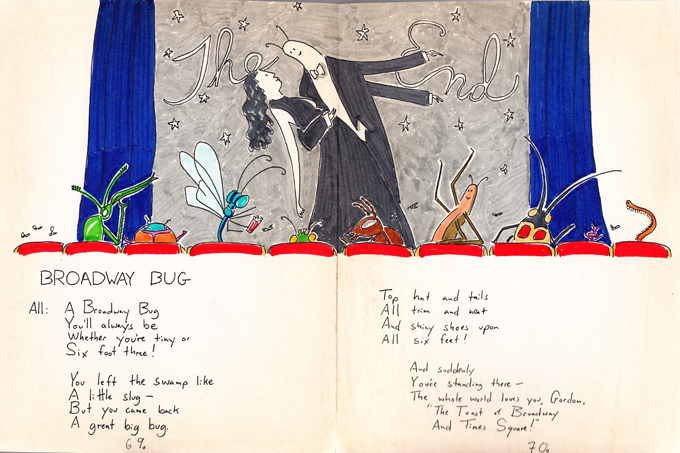 The End
BROADWAY BUG
All: A Broadway Bug
You'll always be
Whether you're tiny or
Six foot three!
You left the swamp like
A little slug –
But you came back
A great big bug.
69.
Top hat and tails
All trim and neat
And shiny shoes upon
All six feet!
And suddenly
You're standing there –
The whole world loves you, Gordon,
"The Toast of Broadway
And Times Square!"
70.